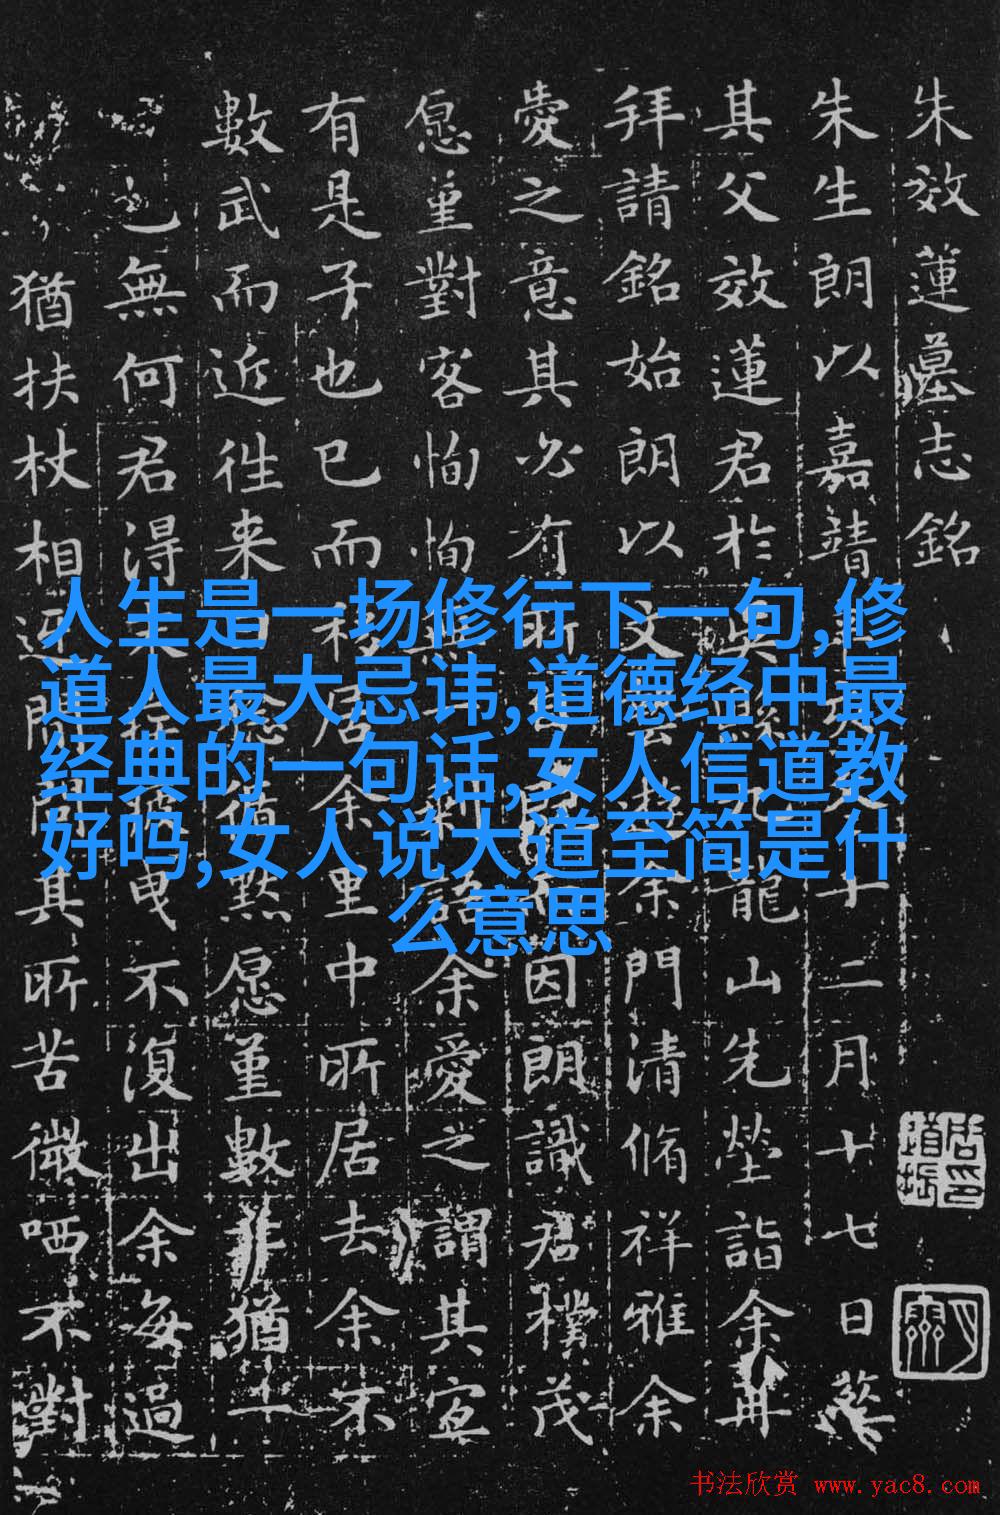 朱效蓮墓志銘
朱生朗以嘉靖十二月十七日葬
其父效蓮君於吳縣九龍山先塋詣余再
拜請銘始朗以文余門清脩祥雅余
愛之意其必有所因朗識君樸茂
愿重對客恂恂無余愛之謂其宜
有是子也已而移居余里中所居去余不
數武而近徃来黙愿重數猶一
已無何君得曳不復出余每過
猶扶杖相迓門其所苦微哂不對
人生是一场修行下一句,修
道人最大忌讳,道德经中最
经典的一句话,女人信道教
好吗,女人说大道至简是什
么意思
书法欣赏 www.yac8.com